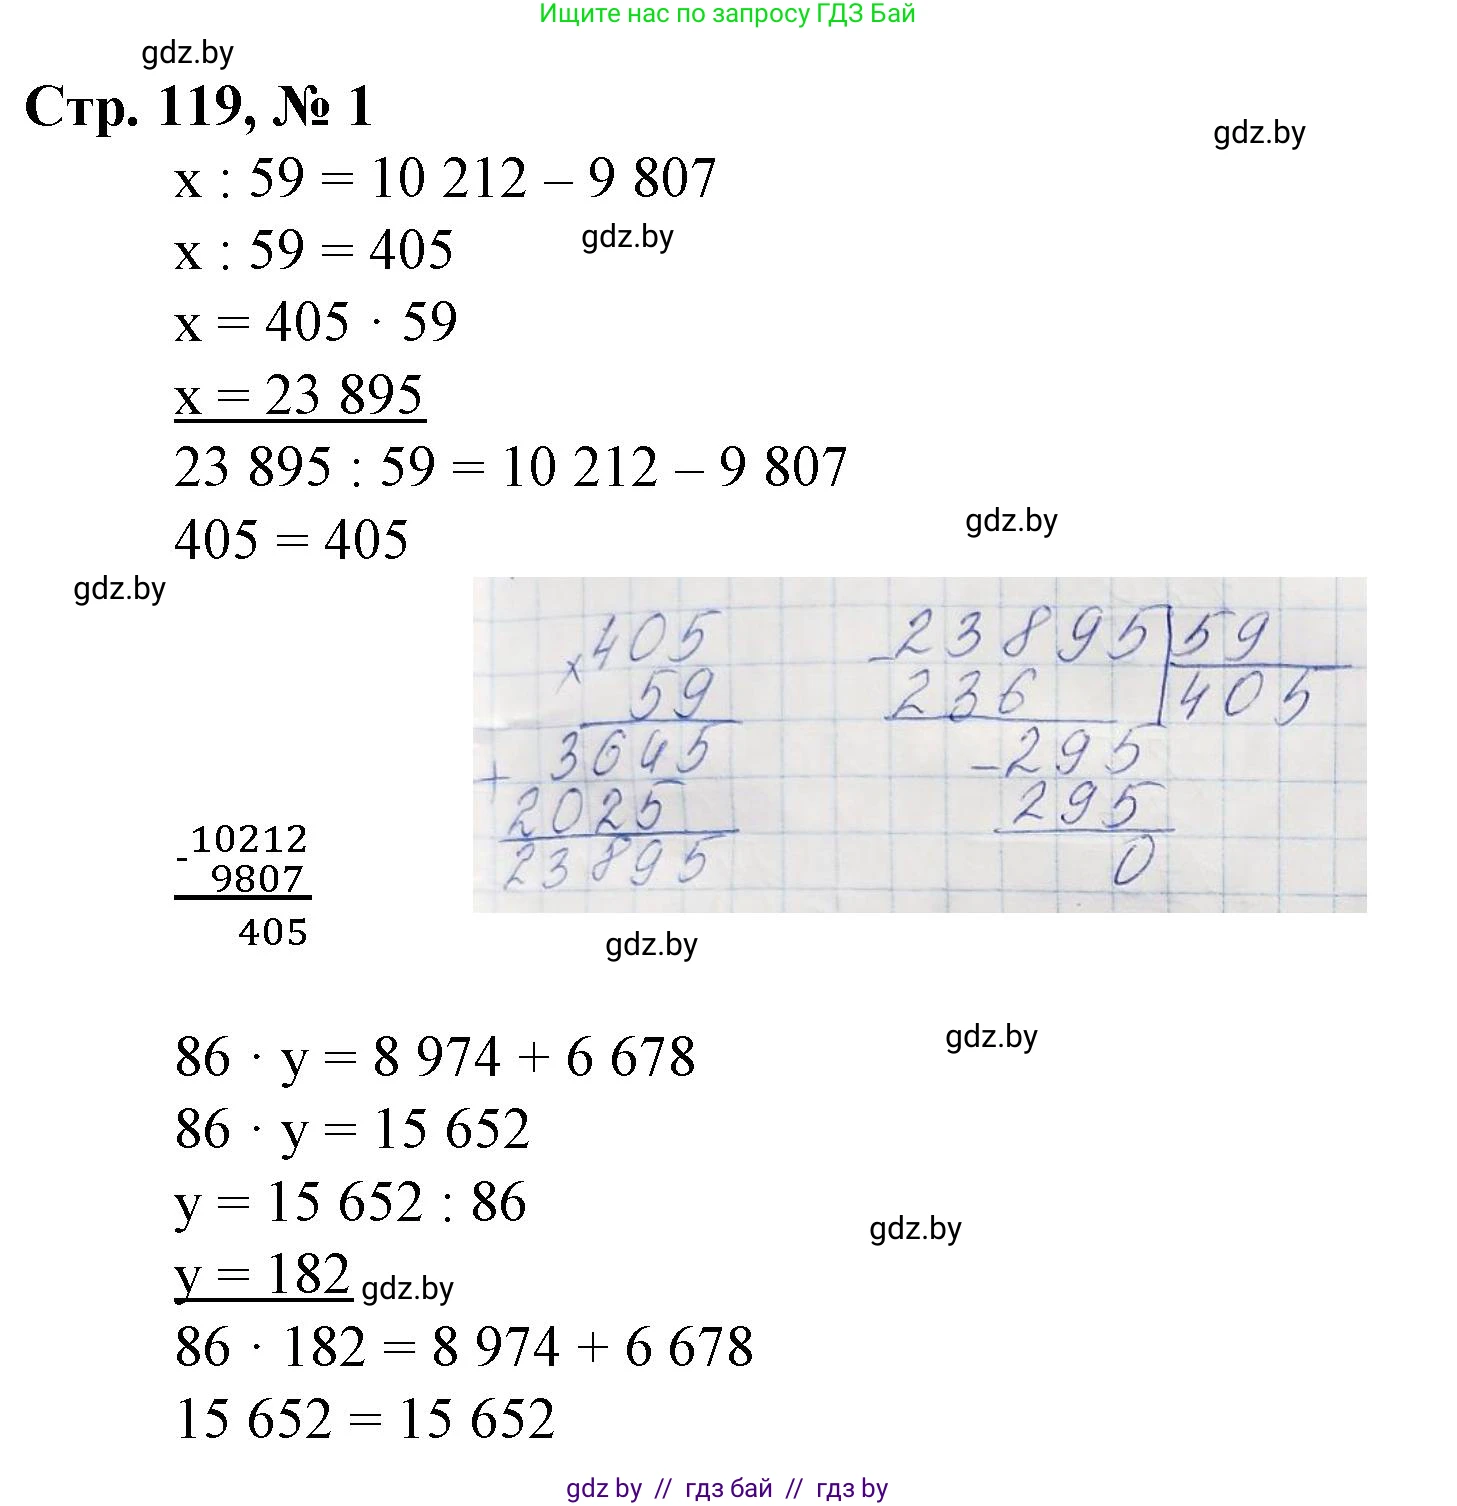 Ищите нас по запросу ГДЗ Бай
gdz.by
Стр. 119, № 1
gdz.by
x : 59 = 10 212 – 9 807
x : 59 = 405
gdz.by
x = 405 · 59
x = 23 895
23 895 : 59 = 10 212 – 9 807
405 = 405
gdz.by
gdz.by
×405
59
+ 3645
2025
23895
-23895 59
236 405
-295
295
0
-10212
9807
405
gdz.by
86 · y = 8 974 + 6 678
gdz.by
86 · y = 15 652
y = 15 652 : 86
gdz.by
y = 182
gdz.by
86 · 182 = 8 974 + 6 678
15 652 = 15 652
gdz by // гдз бай // гдз by